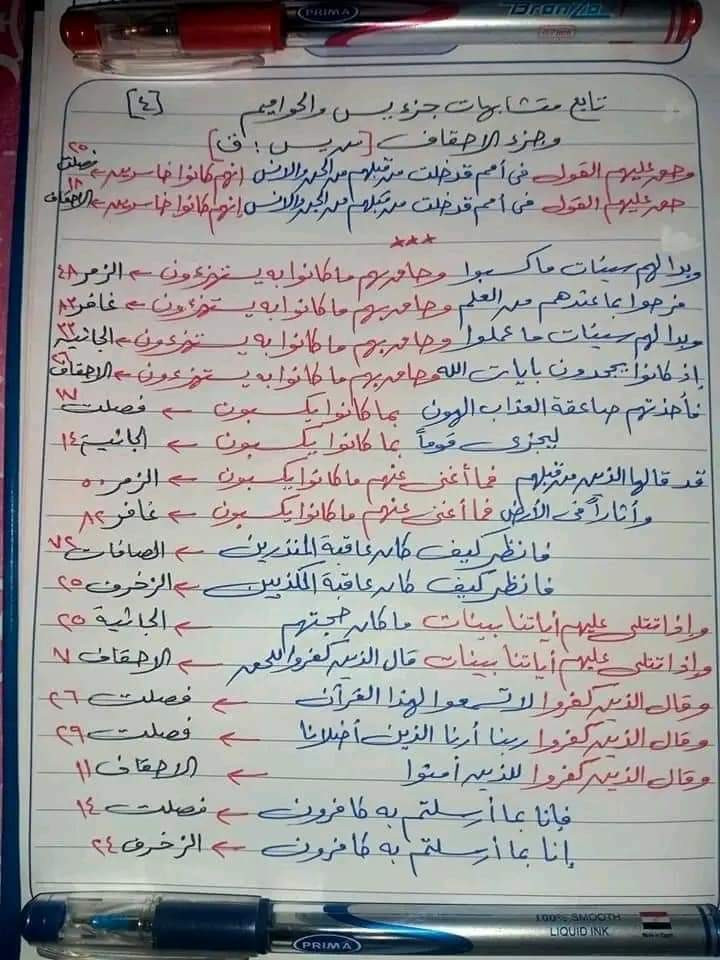 PRIMA
Bronze
تابع متشابهات جزء يس والحواميم [٤]
وجزء الاحقاف [من يس : ق]
وحق عليهم القول فى أمم قد خلت من قبلهم من الجن والانس إنهم كانوا خاسرين ← فصلت ٢٥
حق عليهم القول فى أمم قد خلت من قبلهم من الجن والانس إنهم كانوا خاسرين ← الاحقاف ١٨
***
وبدا لهم سيئات ما كسبوا وحاق بهم ما كانوا به يستهزءون ← الزمر ٤٨
فرحوا بما عندهم من العلم وحاق بهم ما كانوا به يستهزءون ← غافر ٨٣
وبدا لهم سيئات ما عملوا وحاق بهم ما كانوا به يستهزءون ← الجاثية ٣٣
إذ كانوا يجحدون بايات الله وحاق بهم ما كانوا به يستهزءون ← الاحقاف ٢٦
فأخذتهم صاعقة العذاب الهون بما كانوا يكسبون ← فصلت ١٧
ليجزى قوماً بما كانوا يكسبون ← الجاثية ١٤
قد قالها الذين من قبلهم فما أغنى عنهم ما كانوا يكسبون ← الزمر ٥٠
وأثاراً فى الأرض فما أغنى عنهم ما كانوا يكسبون ← غافر ٨٢
فانظر كيف كان عاقبة المنذرين ← الصافات ٧٢
فانظر كيف كان عاقبة المكذبين ← الزخرف ٢٥
وإذا تتلى عليهم أياتنا بينات ما كان حجتهم ← الجاثية ٢٥
وإذا تتلى عليهم أياتنا بينات قال الذين كفروا للحق ← الاحقاف ٧
وقال الذين كفروا لا تسمعوا لهذا القرآن ← فصلت ٢٦
وقال الذين كفروا ربنا أرنا الذين أضلانا ← فصلت ٢٩
وقال الذين كفروا للذين أمنوا ← الاحقاف ١١
فإنا بما أرسلتم به كافرون ← فصلت ١٤
إنا بما أرسلتم به كافرون ← الزخرف ٢٤
PRIMA
100% SMOOTH
LIQUID INK